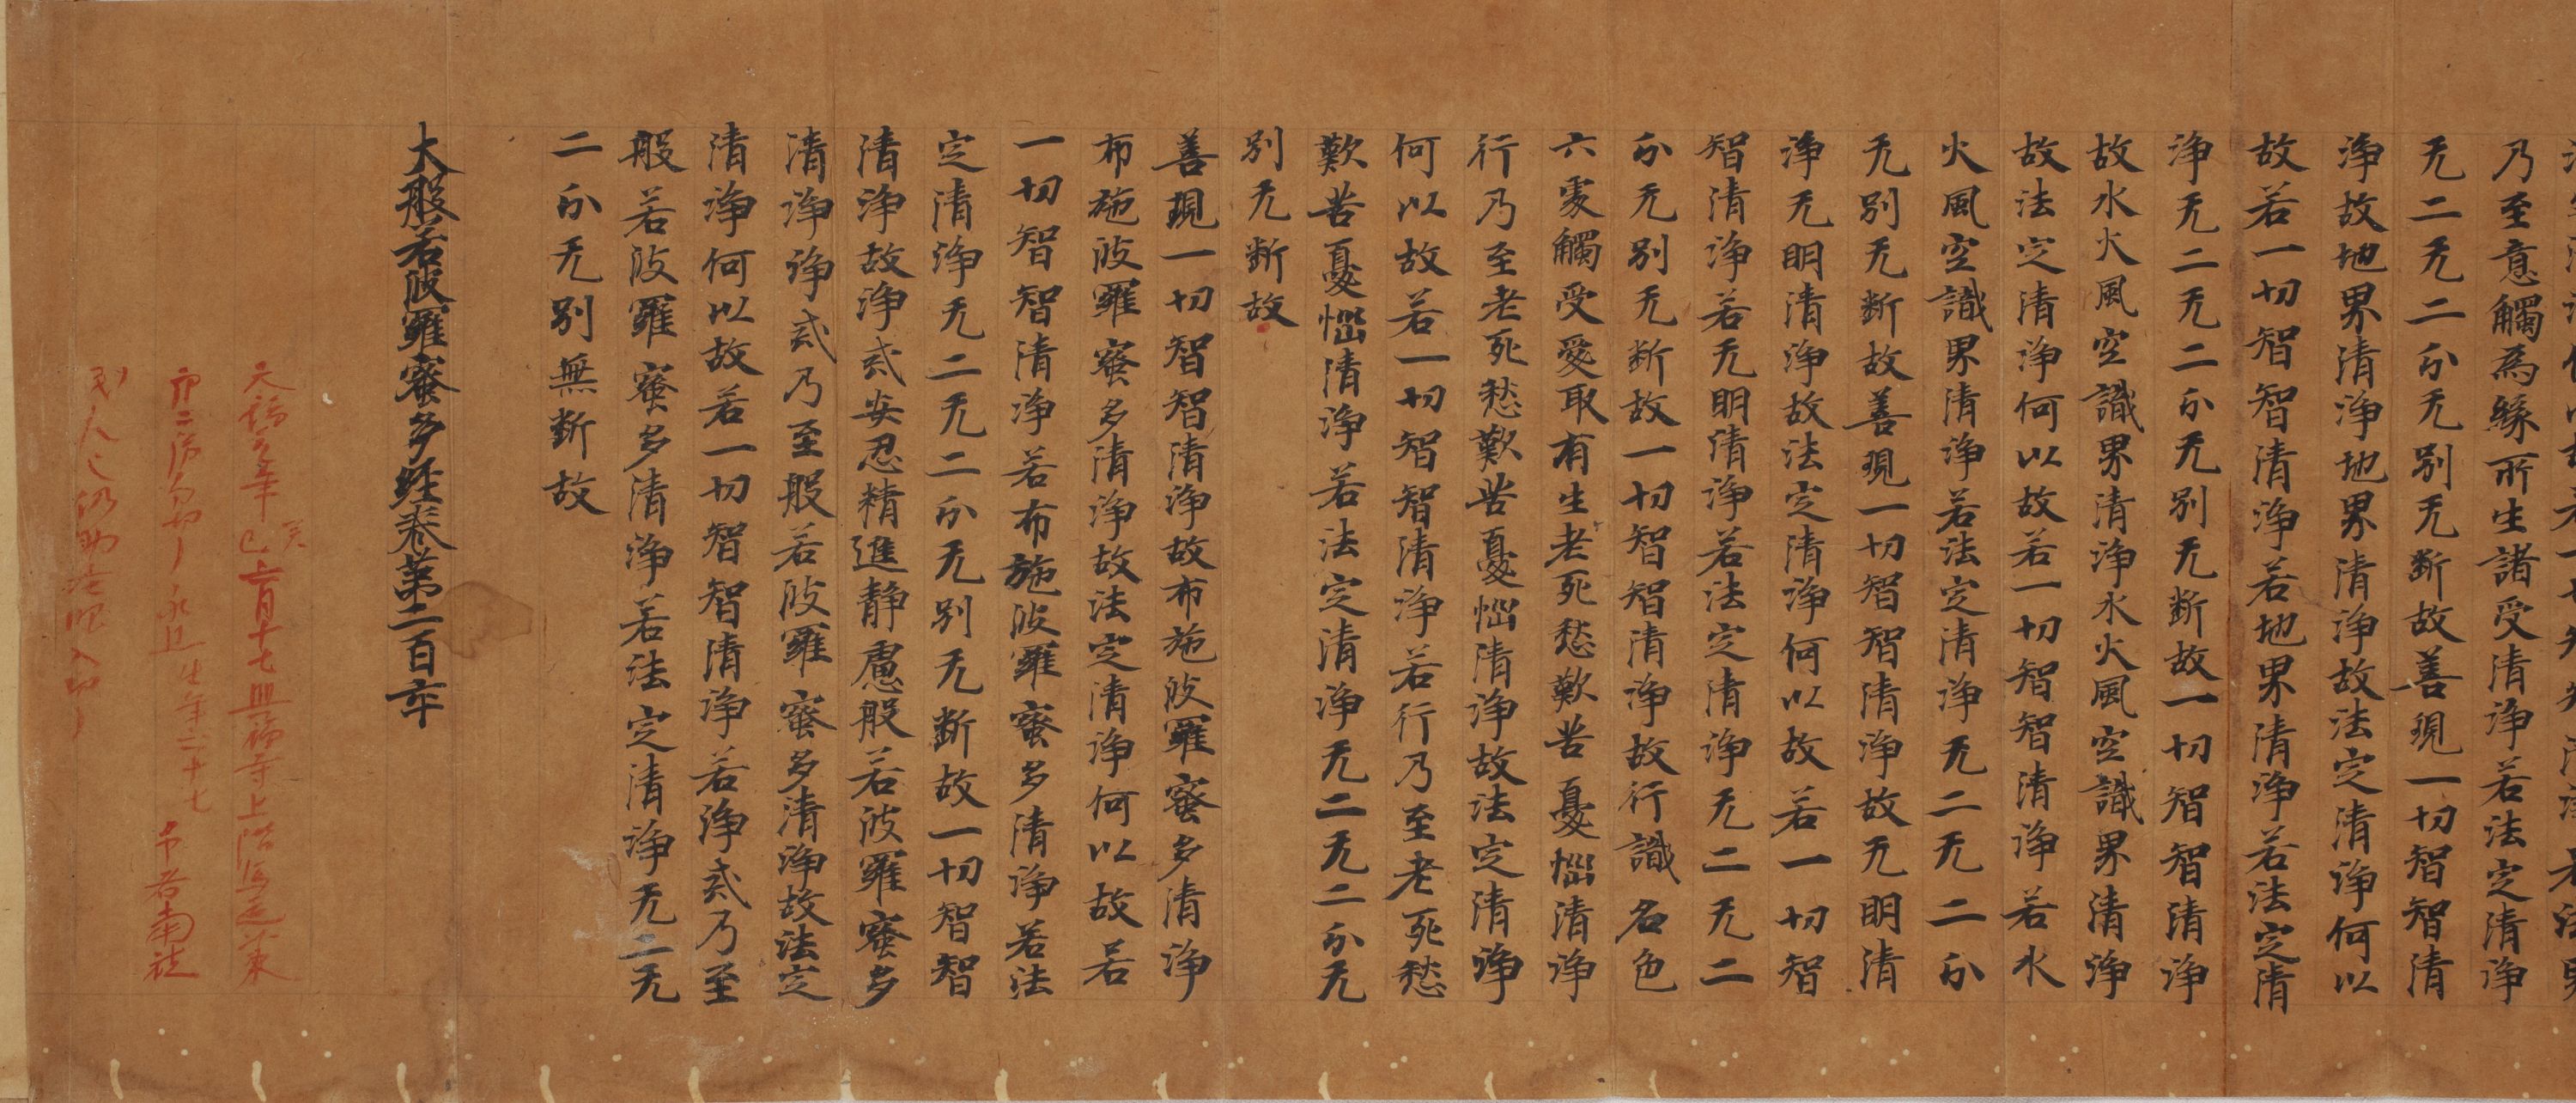 乃至意觸為縁所生諸受清浄若法定清浄
无二无二分无別无断故善現一切智智清
浄故地界清浄地界清浄故法定清浄何以
故若一切智智清浄若地界清浄若法定清
浄无二无二分无別无断故一切智智清浄
故水火風空識界清浄水火風空識界清浄
故法定清浄何以故若一切智智清浄若水
火風空識界清浄若法定清浄无二无二分
无別无断故善現一切智智清浄故无明清
浄无明清浄故法定清浄何以故若一切智
智清浄若无明清浄若法定清浄无二无二
分无別无断故一切智智清浄故行識名色
六處觸受愛取有生老死愁歎苦憂惱清浄
行乃至老死愁歎苦憂惱清浄故法定清浄
何以故若一切智智清浄若行乃至老死愁
歎苦憂惱清浄若法定清浄无二无二分无
別无断故
善現一切智智清浄故布施波羅蜜多清浄
布施波羅蜜多清浄故法定清浄何以故若
一切智智清浄若布施波羅蜜多清浄若法
定清浄无二无二分无別无断故一切智智
清浄故浄貳安忍精進静慮般若波羅蜜多
清浄浄貳乃至般若波羅蜜多清浄故法定
清浄何以故若一切智智清浄若浄貳乃至
般若波羅蜜多清浄若法定清浄无二无
二分无別無断故
大般若波羅蜜多経巻第二百卆
天福元年癸巳六月十七興福寺上階馬道東
生年二十七